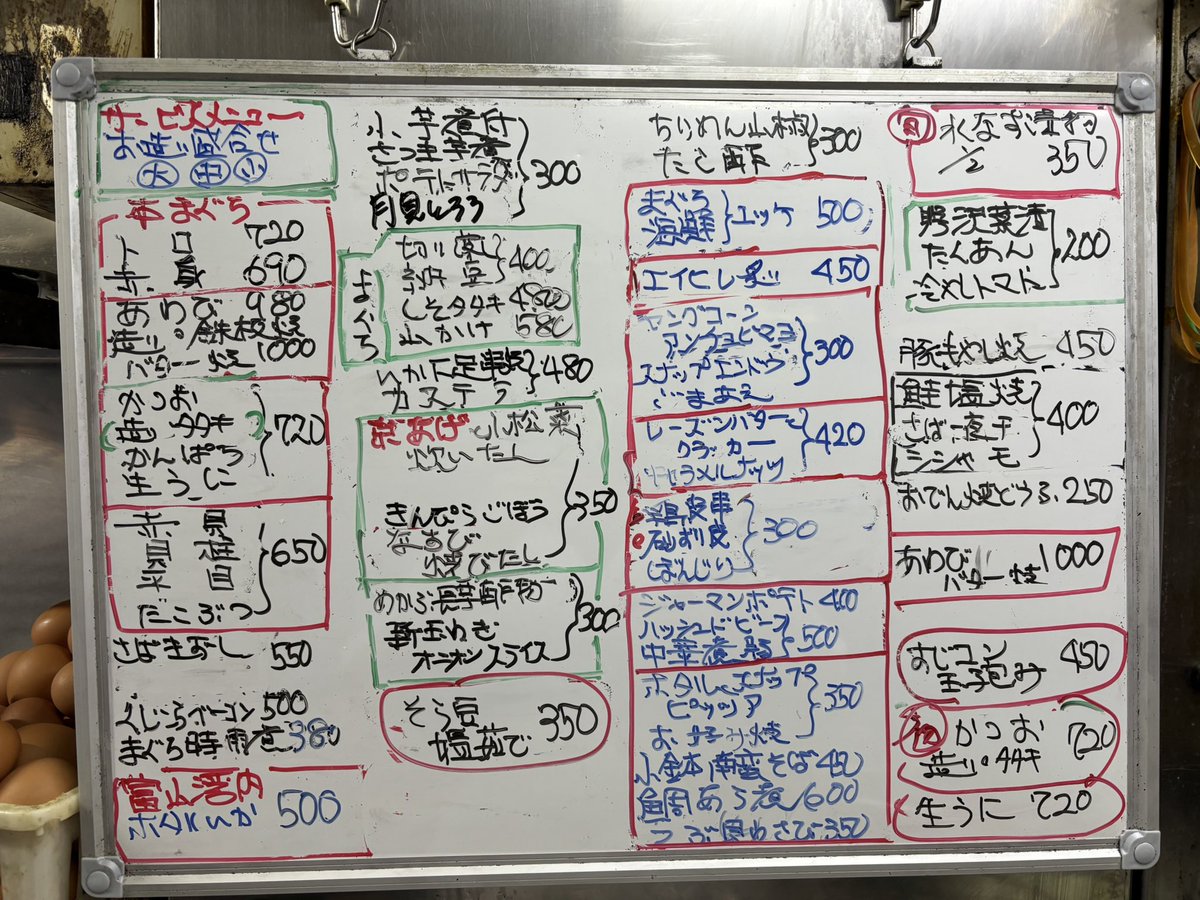 サービスメニュー
お造り盛合せ
大 中 小
本まぐろ
トロ 720
赤身 690
あわび 980
造り・鉄板焼
バター焼 1000
かつお
造・タタキ
かんぱち
生うに
720
赤貝
貝柱
平目
たこぶつ
650
さばきずし 550
くじらベーコン 500
まぐろ時雨煮 380
富山湾内
ホタルいか 500
小芋煮付
さつま芋煮
ポテトサラダ
月見とろろ
300
まぐろ
切り落し
納豆
400
しそタタキ 480
山かけ 580
いか下足串焼
カステラ
480
菜あげ 小松菜
炊いたん
きんぴらごぼう
焼びたし
350
めかぶ長芋酢の物
新玉ねぎ
オニオンスライス
300
そら豆
塩茹で
350
ちりめん山椒
たこ酢
300
まぐろ
海鮮
ユッケ 500
エイヒレ炙り 450
ヤングコーン
アンチョビマヨ
スナップエンドウ
ごまあえ
300
レーズンバター
クラッカー
キャラメルナッツ
420
鶏皮串
砂ずり皮
ぼんじり
300
ジャーマンポテト 400
ハッシュドビーフ
中華煮豚
500
ホタルスナップ
ピッツア
お好み焼
350
南蛮そば 450
鯛あら煮 600
つぶ貝わさび 350
旬 水なす漬物
1/2 350
野沢菜漬
たくあん
冷やしトマト
200
豚もやし炒え 450
鮭塩焼
さば一夜干
シシャモ
400
おでん焼どうふ 250
あわび
バター焼
1000
すじコン
玉子包み
450
初 かつお
造り・タタキ
720
生うに 720